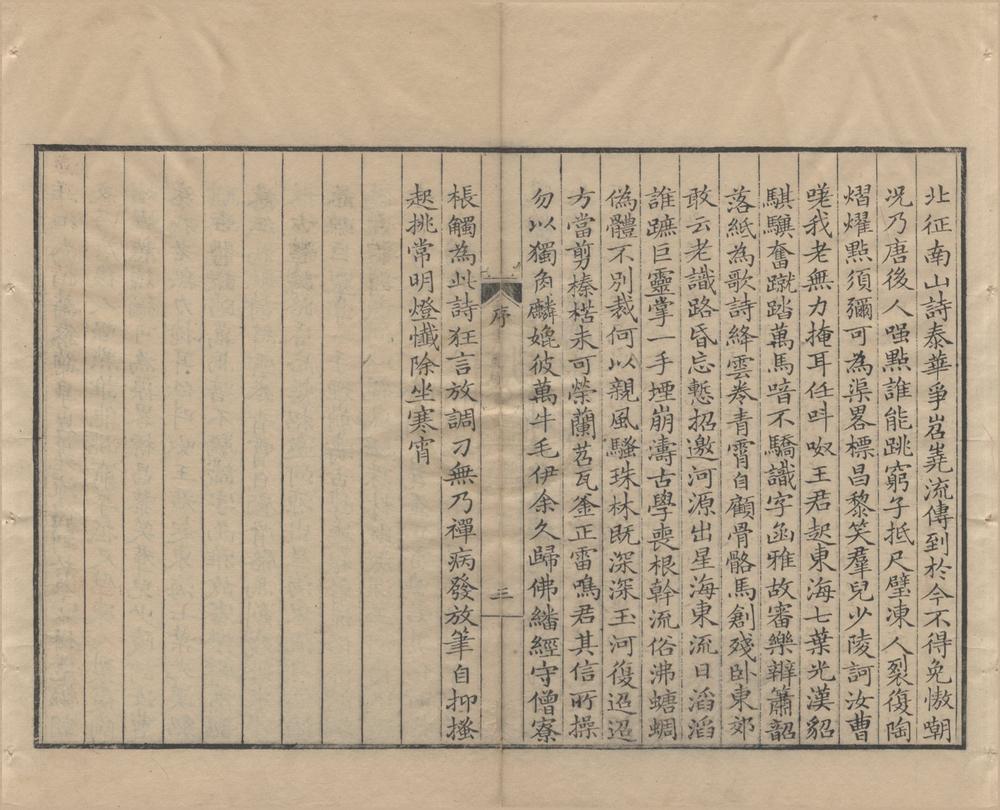 北征南山詩泰華爭岧嶤流傳到於今不得免憿嘲
況乃唐後人嗤點誰能跳窮子抵尺璧凍人裂復陶
熠燿點須彌可為渠畧標昌黎笑羣兒少陵訶汝曹
嗟我老無力掩耳任呌呶王君起東海七葉光漢貂
騏驥奮蹴踏萬馬喑不驕識字函雅故審樂辯簫韶
落紙為歌詩絳雲卷青霄自顧骨骼馬創殘卧東郊
敢云老識路昏忘慙招邀河源出星海東流日滔滔
誰蹠巨靈掌一手堙崩濤古學喪根幹流俗沸螗蜩
偽體不別裁何以親風騷珠林既深深玉河復迢迢
方當剪榛楛未可榮蘭苕瓦釜正雷鳴君其信所操
勿以獨角麟媲彼萬牛毛伊余久歸佛繙經守僧寮
序
三
棖觸為此詩狂言放調刁無乃禪病發放筆自抑搔
起挑常明燈懺除坐寒宵